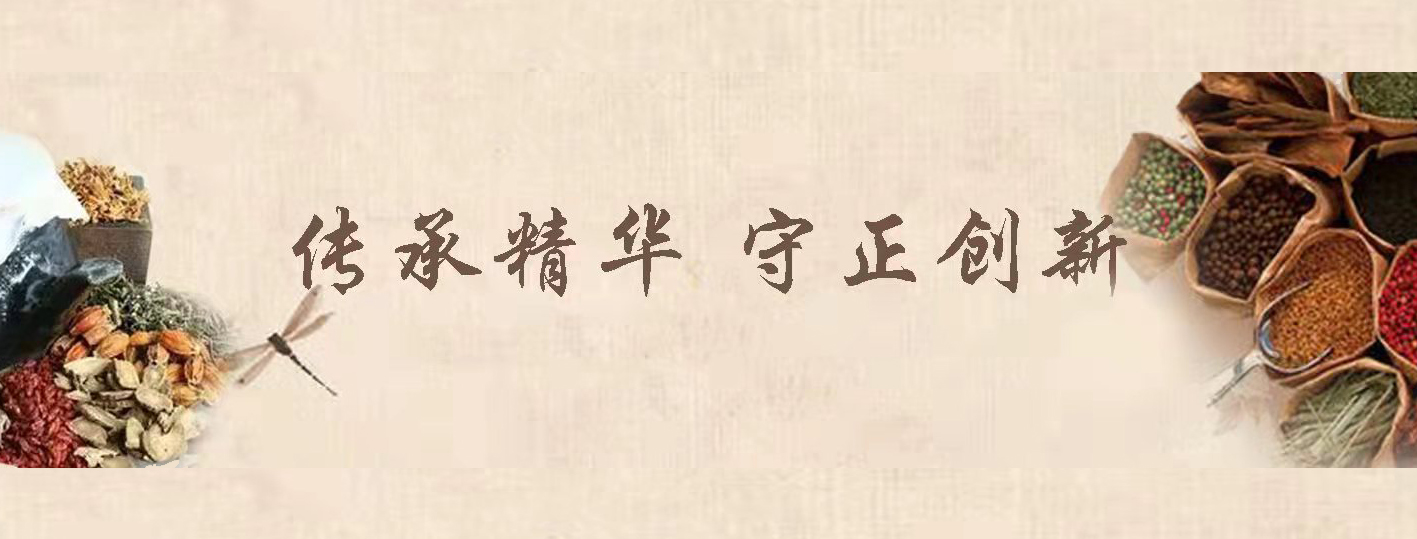 传承精华 守正创新